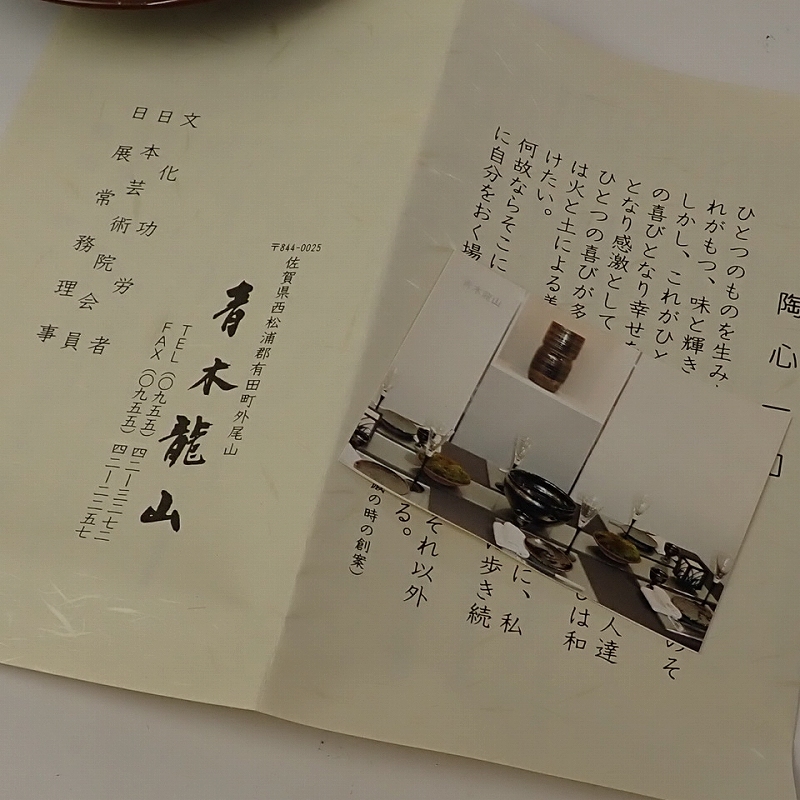 陶心一
ひとつのものを生み、
のそ
れがもつ、味と輝き
しかし、これがひと
人達
の喜びとなり幸せ
は和
となり感激として
ひとつの喜びが多
に、私
は火と土による美
歩き続
けたい。
何故ならそこに
それ以外
に自分をおく場
る。
の時の創案)
青木龍山
文化功労者
日本芸術院会員
日展常務理事
〒844-0025
佐賀県西松浦郡有田町外尾山
青木龍山
TEL (〇九五五) 四二ー三二七二
FAX (〇九五五) 四二ー二二五七